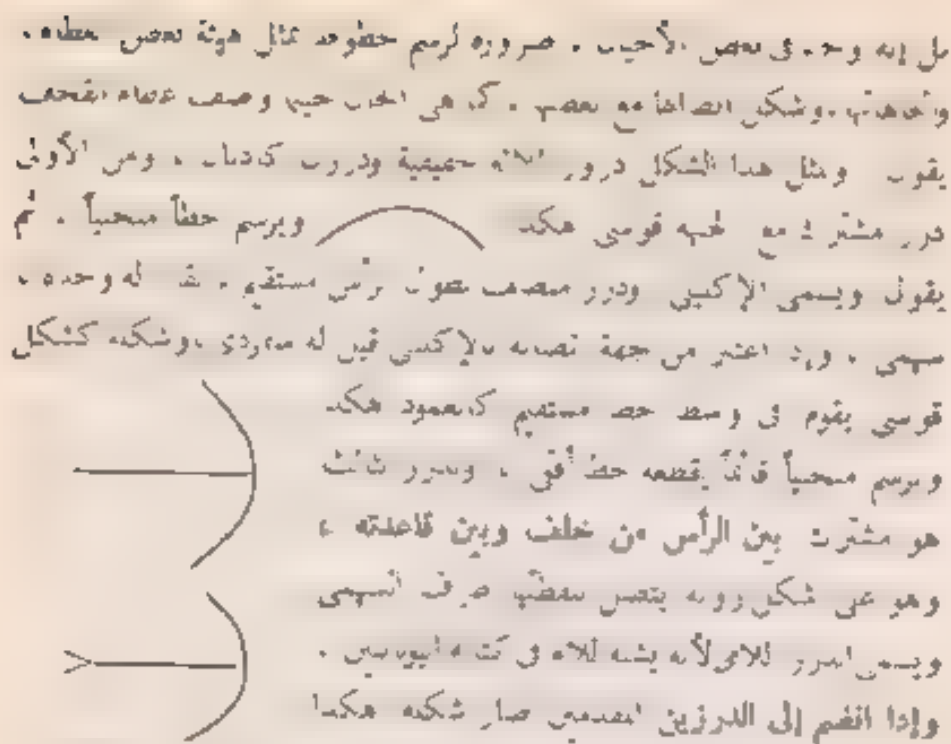 بل إنه وجد في بعض الأحيان ، ضرورة لرسم خطوط تمثل هيئة بعض العظام ،
واتجاهاتها ، وشكل اتصالها مع بعضها ، كما هي الحال حينما وصف عظام القحف
يقول ومثل هذا الشكل دروز ثلاثة حقيقية ودرزان كاذبان ، ومن الأولى
درز مشترك مع الجبهة قوسي هكذا ويرسم خطاً منحنياً ، ثم
يقول ويسمى الإكليلي ودرز منصف لطول الرأس مستقيم ، يقال له وحده ،
سهمي ، وإذا اعتبر من جهة اتصاله بالإكليلي قيل له سفودي ، وشكله كشكل
قوسي يقوم في وسط خط مستقيم كالعمود هكذا
ويرسم منحنياً قائماً يقطعه خط أفقي ، والدرز الثالث
هو مشترك بين الرأس من خلف وبين قاعدته ،
وهو على شكل زاوية يتصل بنقطتها طرف السهمي
ويسمى الدرز اللامي لأنه يشبه اللام في كتابة اليونانيين ،
وإذا انضم إلى الدرزين المقدمين صار شكله هكذا